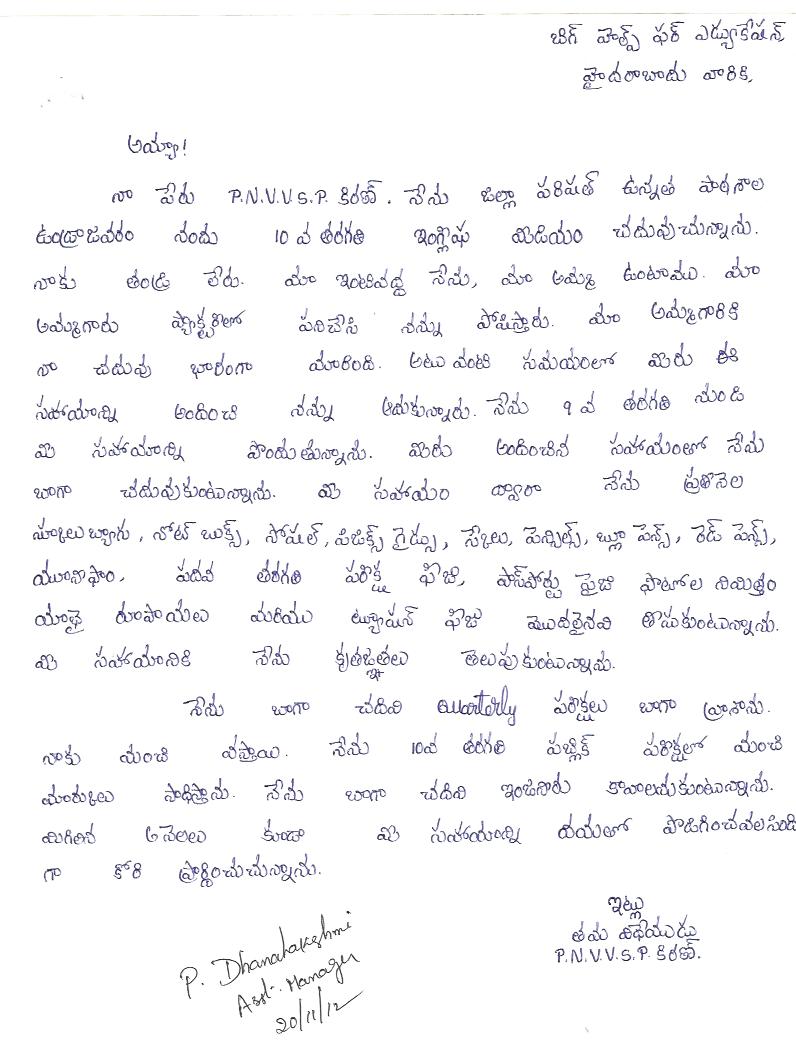 బిగ్ హెల్ప్ ఫర్ ఎడ్యుకేషన్,
హైదరాబాదు వారికి,
అయ్యా!
నా పేరు P.N.V.V.S.P. కిరణ్. నేను జిల్లా పరిషత్ ఉన్నత పాఠశాల
ఉండ్రాజవరం నందు 10 వ తరగతి ఇంగ్లీషు మీడియం చదువుచున్నాను.
నాకు తండ్రి లేరు. మా ఇంటివద్ద నేను, మా అమ్మ ఉంటాము. మా
అమ్మగారు ఫ్యాక్టరీలో పనిచేసి నన్ను పోషిస్తారు. మా అమ్మగారికి
నా చదువు భారంగా మారింది. అటు వంటి సమయంలో మీరు ఈ
సహాయాన్ని అందించి నన్ను ఆదుకున్నారు. నేను 9 వ తరగతి నుండి
మీ సహాయాన్ని పొందుతున్నాను. మీరు అందించిన సహాయంతో నేను
బాగా చదువుకుంటున్నాను. మీ సహాయం ద్వారా నేను ప్రతినెల
స్కూలుబ్యాగు, నోట్ బుక్స్, సోషల్, ఫిజిక్స్ గైడ్సు, స్కేలు, పెన్సిల్స్, బ్లూ పెన్స్, రెడ్ పెన్స్,
యూనిఫాం, పదవ తరగతి పరీక్ష ఫీజు, పాస్‌పోర్టు సైజు ఫొటోల నిమిత్తం
యాభై రూపాయలు మరియు ట్యూషన్ ఫీజు మొదలైనవి తీసుకుంటున్నాను.
మీ సహాయానికి నేను కృతజ్ఞతలు తెలుపుకుంటున్నాను.
నేను బాగా చదివి Quarterly పరీక్షలు బాగా వ్రాశాను.
నాకు మంచి వస్తాయి. నేను 10వ తరగతి పబ్లిక్ పరీక్షలో మంచి
మార్కులు సాధిస్తాను. నేను బాగా చదివి ఇంజనీరు కావాలనుకుంటున్నాను.
మిగిలిన నెలలు కూడా మీ సహాయాన్ని దయతో పొడిగించవలసింది
గా కోరి ప్రార్థించుచున్నాను.
ఇట్లు
తమ విధేయుడు
P.N.V.V.S.P. కిరణ్.
P. Dhanalakshmi
Asst. Manager
20/11/12